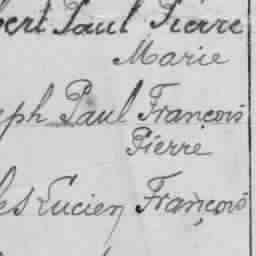 bert Paul Pierre
Marie
eph Paul François
Pierre
les Lucien François